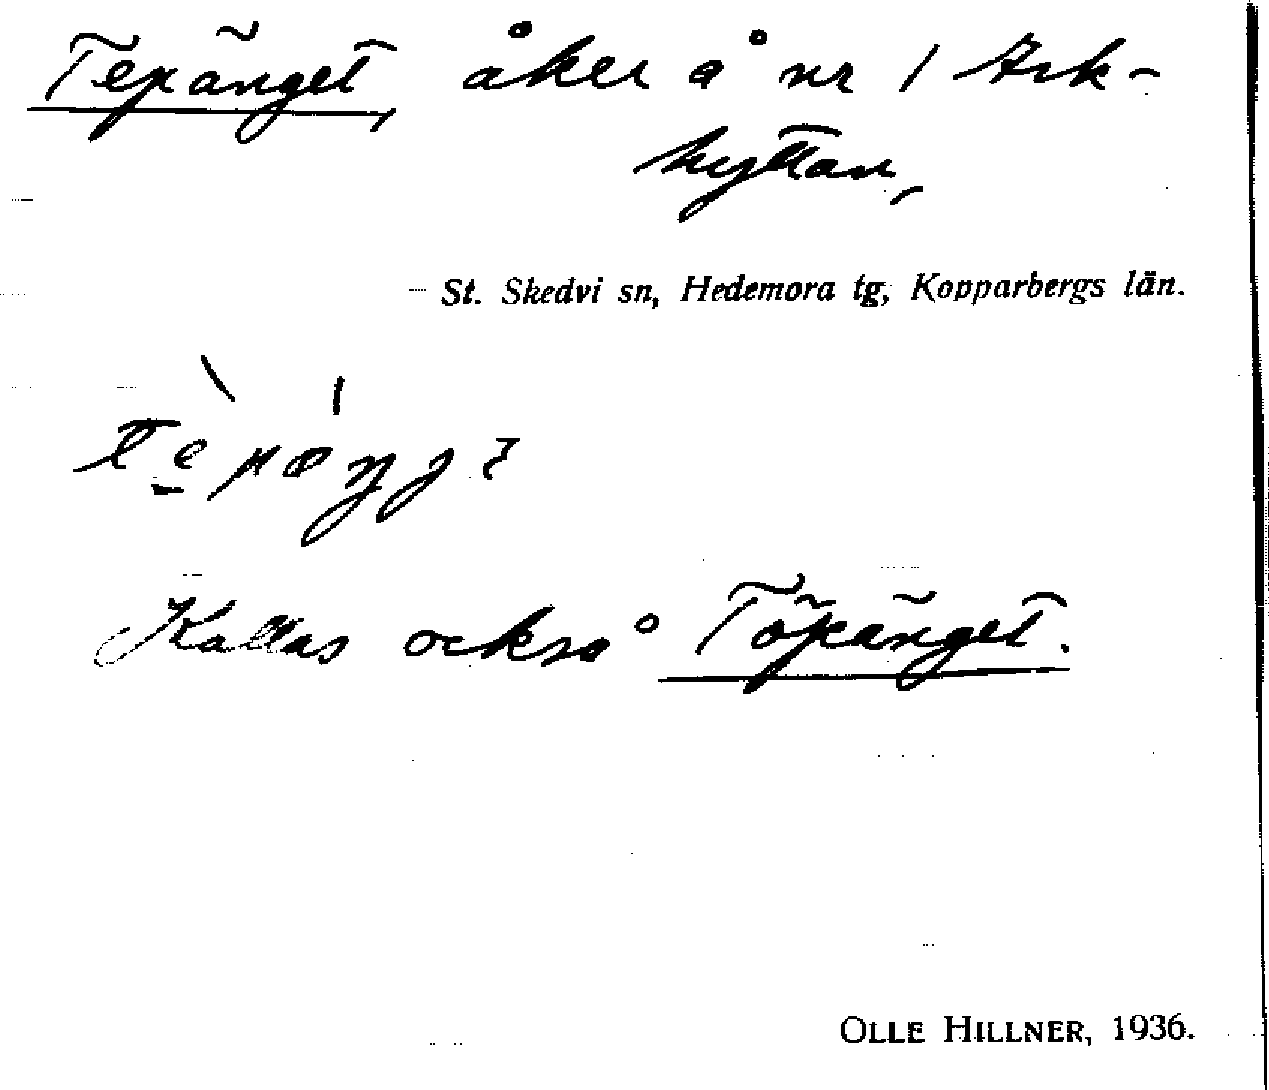 Tepänget, åker å nr 1 Ark-
hyttan,
St. Skedvi sn, Hedemora tg, Kopparbergs län.
Kallas också Töpänget.
OLLE HILLNER, 1936.